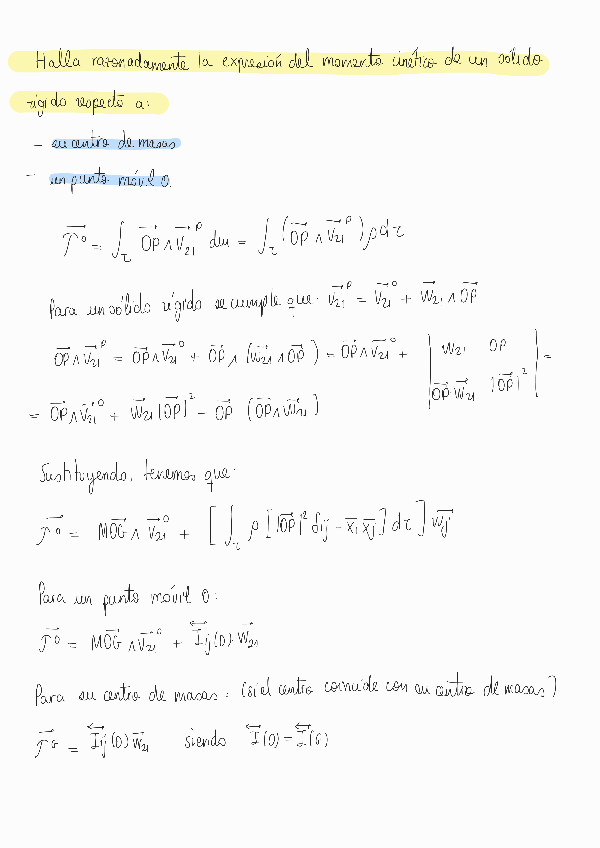 Halla razonadamente la expresión del momento cinético de un sólido
rígido respecto a:
- su centro de masas
- un punto móvil O.
$\vec{J}^{o} = \int_{\tau} \vec{OP} \wedge \vec{V}_{21}^{P} dm = \int_{\tau} (\vec{OP} \wedge \vec{V}_{21}^{P}) \rho d\tau$
Para un sólido rígido se cumple que: $\vec{V}_{21}^{P} = \vec{V}_{21}^{O} + \vec{W}_{21} \wedge \vec{OP}$
$\vec{OP} \wedge \vec{V}_{21}^{P} = \vec{OP} \wedge \vec{V}_{21}^{O} + \vec{OP} \wedge (\vec{W}_{21} \wedge \vec{OP}) = \vec{OP} \wedge \vec{V}_{21}^{O} + \begin{vmatrix} W_{21} & OP \\ \vec{OP} \vec{W}_{21} & |\vec{OP}|^2 \end{vmatrix} =$
$= \vec{OP} \wedge \vec{V}_{21}^{O} + \vec{W}_{21} |\vec{OP}|^2 - \vec{OP} (\vec{OP} \wedge \vec{W}_{21})$
Sustituyendo, tenemos que:
$\vec{J}^{o} = M\vec{OG} \wedge \vec{V}_{21}^{O} + [\int_{\tau} \rho [|\vec{OP}|^2 \delta ij - \vec{x_i} \vec{x_j}] d\tau] \vec{W_j}$
Para un punto móvil O:
$\vec{J}^{o} = M\vec{OG} \wedge \vec{V}_{21}^{O} + \overleftrightarrow{I}ij(O) \cdot \vec{W}_{21}$
Para su centro de masas: (si el centro coincide con su centro de masas)
$\vec{J}^{G} = \overleftrightarrow{I}ij(O) \vec{W}_{21}$ siendo $\overleftrightarrow{I}(O) = \overleftrightarrow{I}(G)$